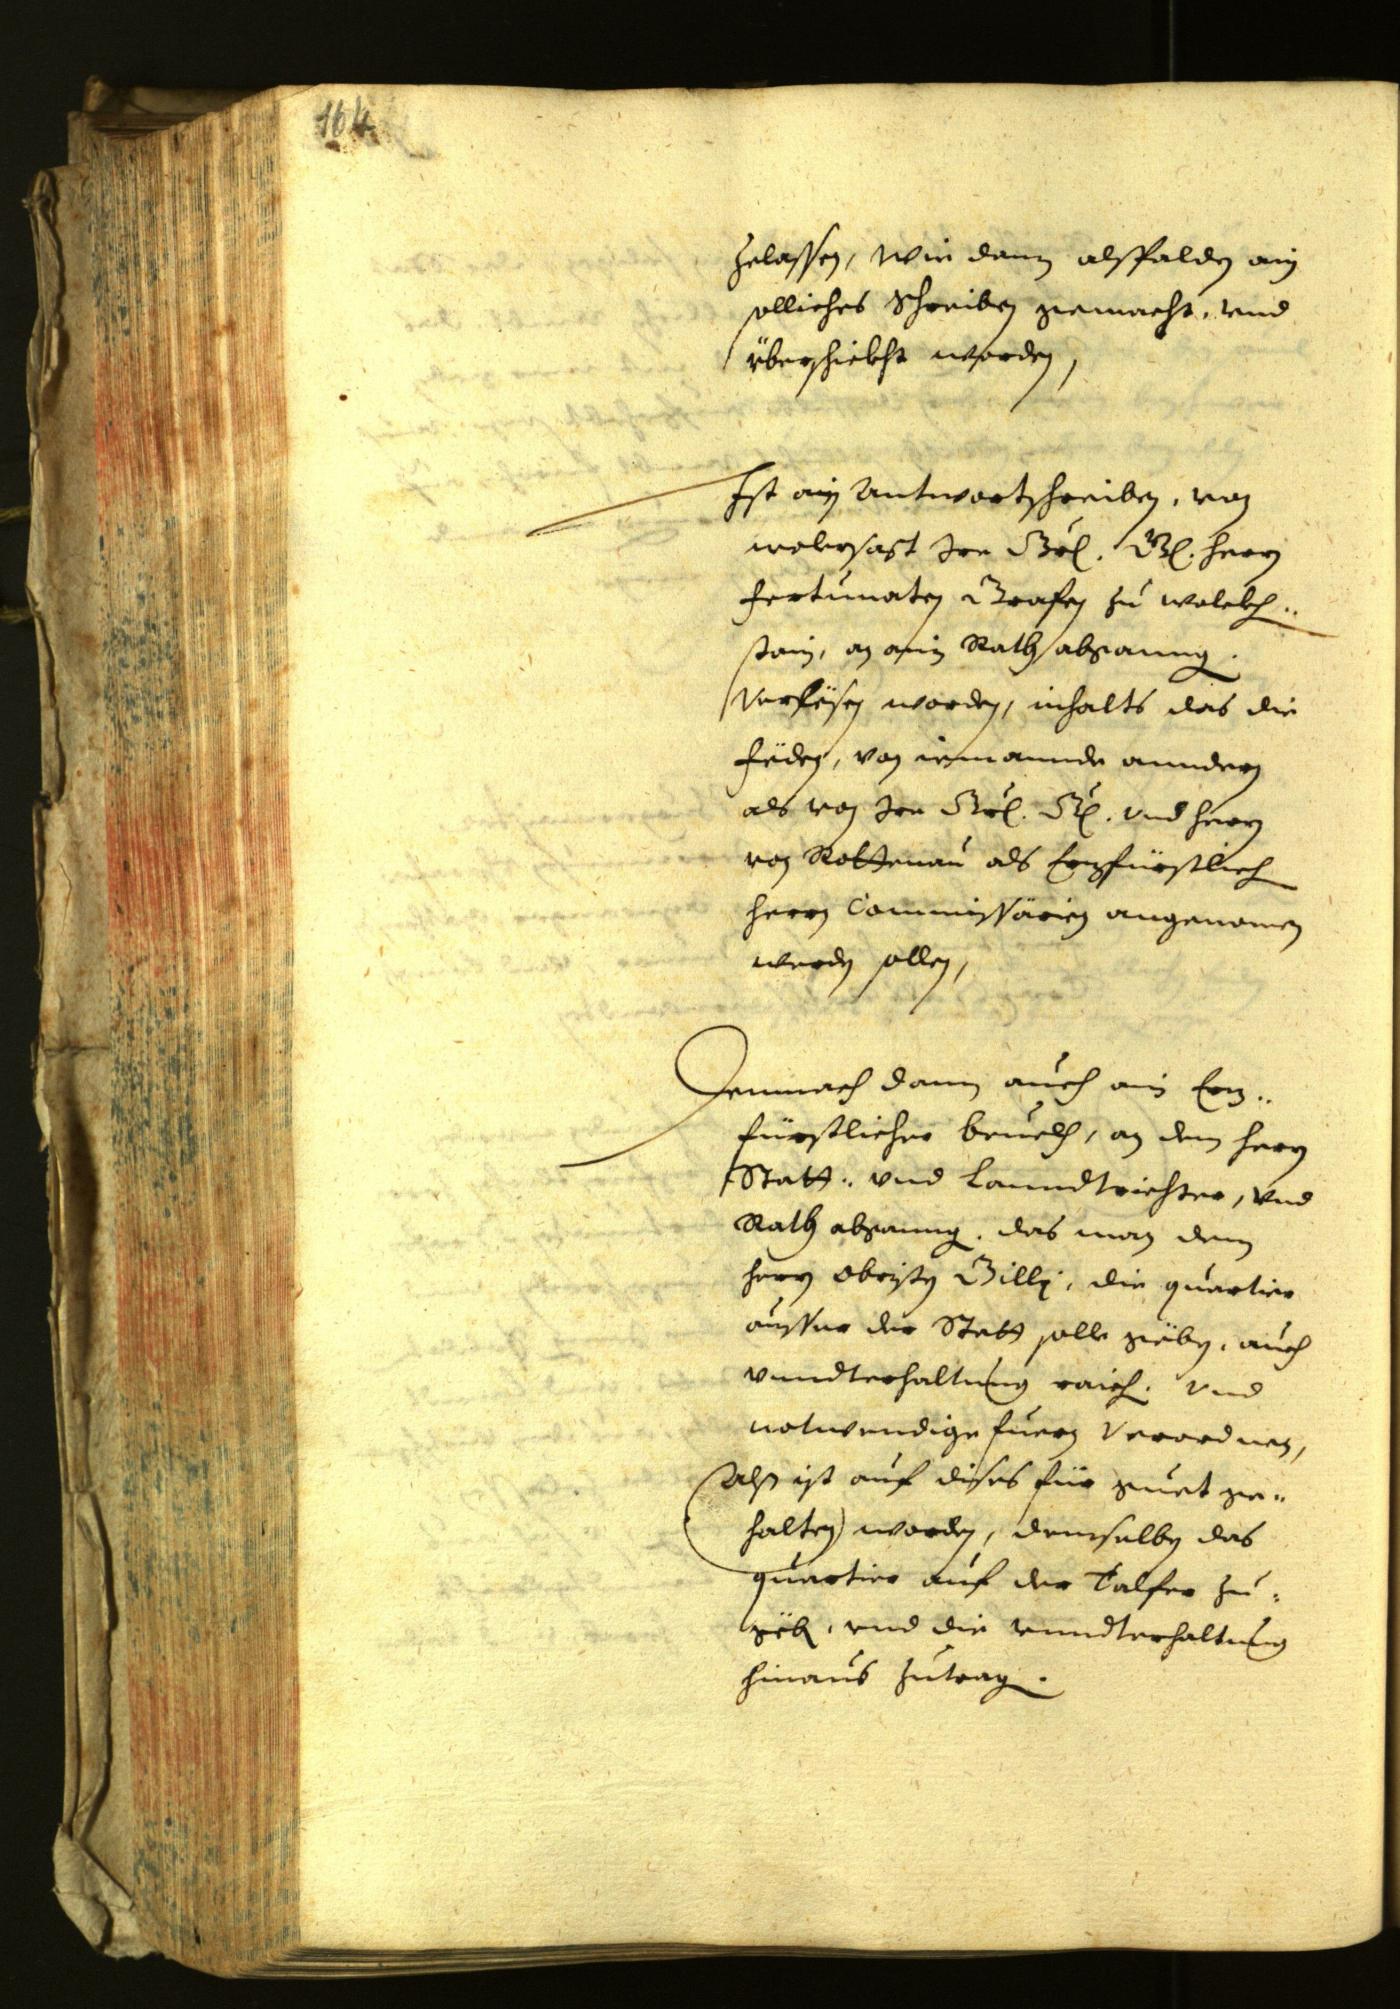 164
zelassen, Wie dann alspalden ain
solliches Schreiben gemacht, vnd
yberschickht worden,
Ist ain Antwortschreiben, von
wolersagt Irer Grl. Gl. herrn
fortunaten Grafen zu wolckh¨
stain, an ain Rath abganng.
Verlesen worden, inhalts das die
von niemannde anndern
als von Irer Grl. Gl. vnd herrn
von als Erzfürstlich
herrn Commissärien angenomen
werden sollen,
Demnach dann auch ain Erz¨
fürstlicher beuelch, an den herrn
Statt¨ vnd Lanndtrichter, vnd
Rath abganng, das man dem
herrn Obristen die quartier
ausser der Statt solle geben, auch
vnndterhaltung raich. vnd
notwendige fuern Verordnen,
Alß ist auf dises für guet ge¨
halten worden, demselben das
quartier auf der Talfer zu¨
geb, vnd die vnndterhaltung
hinaus zutrag.